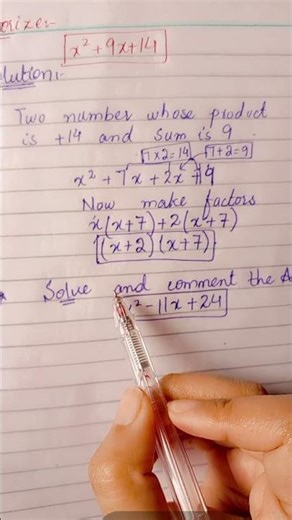 x² + 9x + 14
Two number whose product
is +14 and sum is 9
7x2=14 7+2=9
x² + 7x + 2x + 9
Now make factors
x(x+7)+2(x+7)
(x+2) (x+7)
Solve and comment the
² - 11x + 24